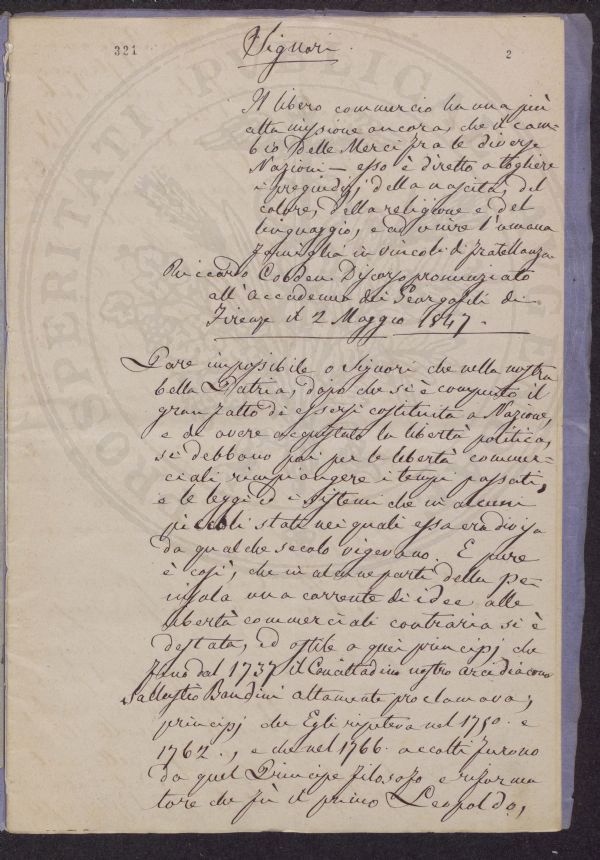 321
Signori
2
Il libero commercio ha una più
alta missione ancora, che il cam-
bio delle Merci fra le diverse
Nazioni — esso è diretto a togliere
i pregiudizj della nascita, del
colore, della religione e del
linguaggio, e ad unire l'umana
famiglia in vincoli di fratellanza
Riccardo Cobden Discorso pronunziato
all'Accademia dei Georgofili di
Firenze il 2 Maggio 1847.
Pare impossibile o Signori che nella nostra
bella Patria, dopo che si è compiuto il
gran fatto di essersi costituita a Nazione,
e di avere acquistato la libertà politica,
si debbano poi per le libertà commer-
ciali rimpiangere i tempi passati,
e le leggi ed i sistemi che in alcuni
piccoli stati nei quali essa era divisa
da qualche secolo vigevano. E pure
è così, che in alcune parti della Pe-
nisola una corrente di idee alle
libertà commerciali contraria si è
destata, ed ostile a quei principj che
fino dal 1737 il Concittadino nostro arcidiacono
Sallustio Bandini altamente proclamava;
principj che Egli ripeteva nel 1750. e
1762., e che nel 1766. accolti furono
da quel Principe filosofo e riforma
tore che fù il primo Leopoldo,
PROSPERITATI PUBLICAE